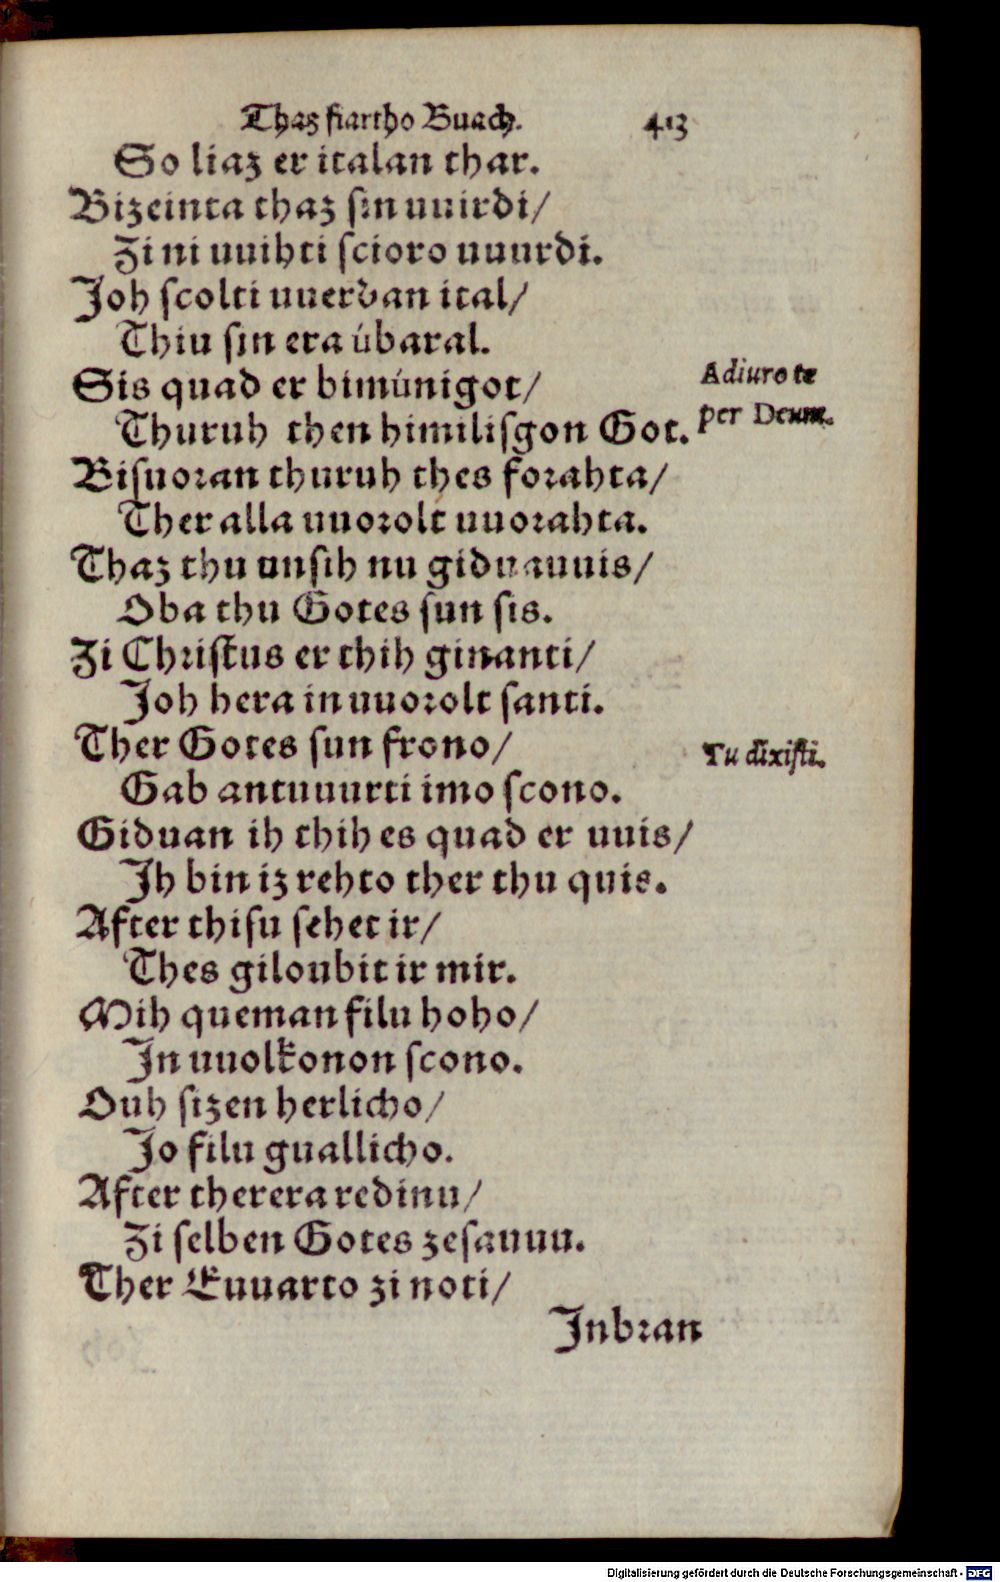 Thaz fiartho Buach. 413
So liaz er italan thar.
Bizeinta thaz sin uuirdi/
Zi ni uuihti scioro uuurdi.
Joh scolti uuerdan ital/
Thiu sin era úbaral.
Sis quad er bimúnigot/
Thuruh then himilisgon Got.
Adiuro te
per Deum.
Bisuoran thuruh thes forahta/
Ther alla uuorolt uuorahta.
Thaz thu unsih nu giduauuis/
Oba thu Gotes sun sis.
Zi Christus er thih ginanti/
Joh hera in uuorolt santi.
Ther Gotes sun frono/
Tu dixisti.
Gab antuuurti imo scono.
Giduan ih thih es quad er uuis/
Jh bin iz rehto ther thu quis.
After thisu sehet ir/
Thes giloubit ir mir.
Mih queman filu hoho/
Jn uuolkonon scono.
Ouh sizen herlicho/
Jo filu guallicho.
After therera redinu/
Zi selben Gotes zesauuu.
Ther Euuarto zi noti/
Jnbran
Digitalisierung gefördert durch die Deutsche Forschungsgemeinschaft - DFG